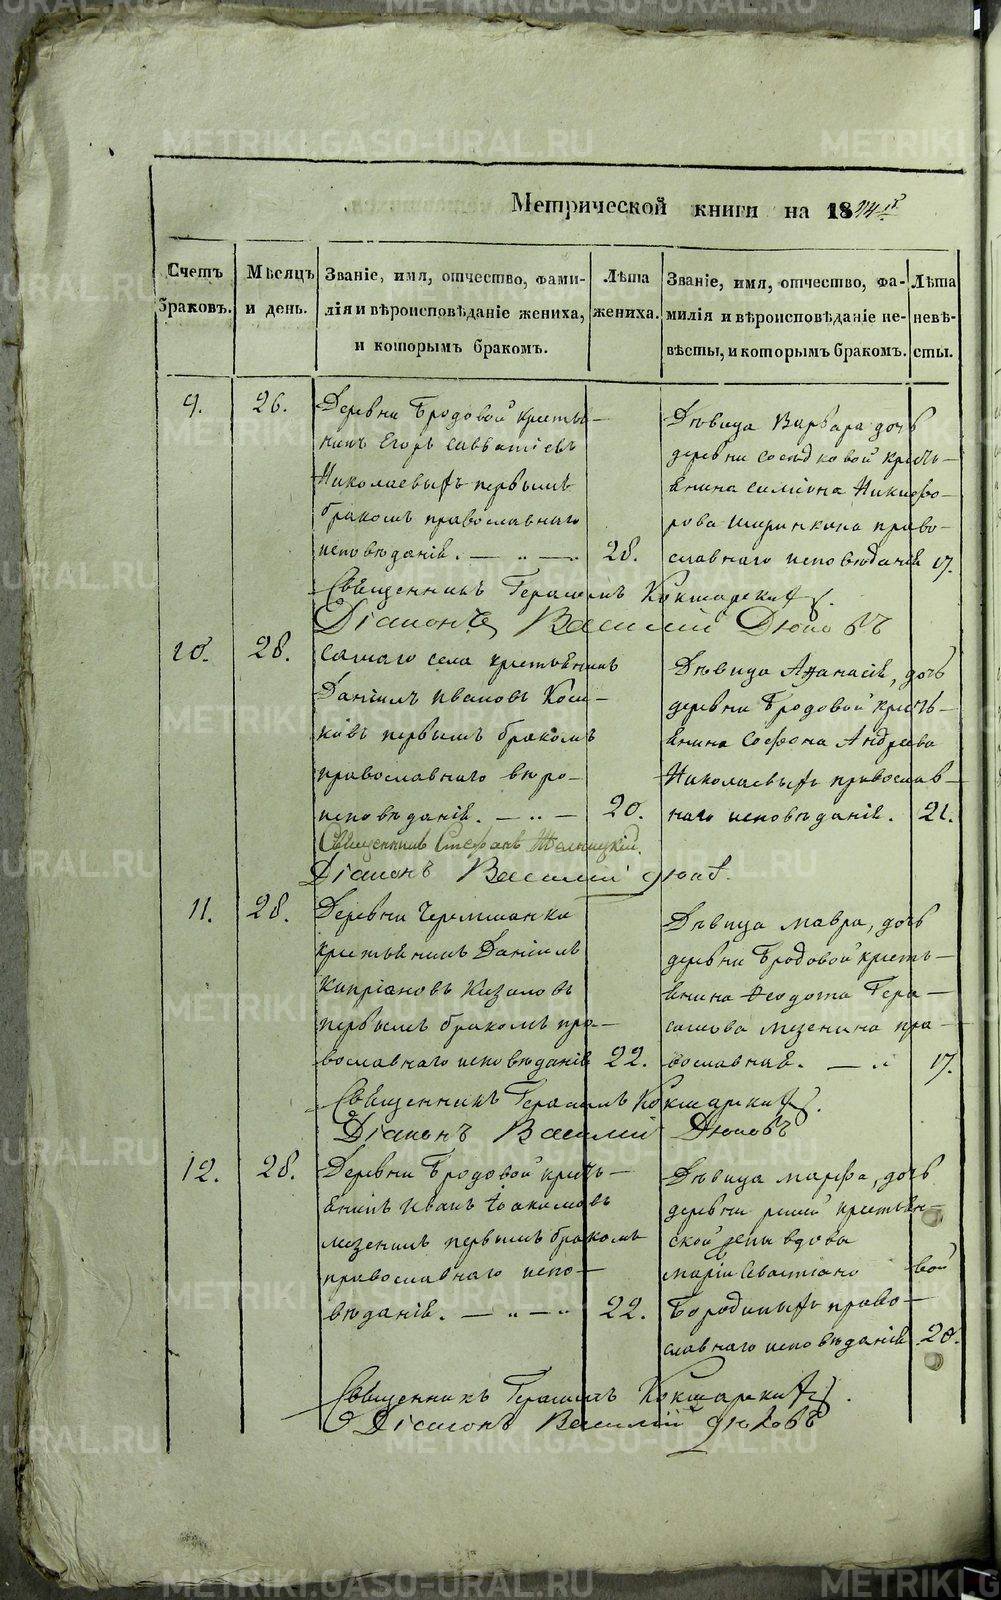 Метрической книги на 1844й
Счетъ браковъ.
Мѣсяцъ и день.
Званіе, имя, отчество, фами-
лія и вѣроисповѣданіе жениха,
и которымъ бракомъ.
Лѣта жениха.
Званіе, имя, отчество, фа-
милія и вѣроисповѣданіе не-
вѣсты, и которымъ бракомъ.
Лѣта невѣ-
сты.
9.
26.
Деревни Бродовой кресть-
нинъ Егоръ Савватіевъ
Николаевыхъ первымъ
бракомъ православнаго
исповѣданія. — „ —
28.
Дѣвица Варвара дочь
деревни Сосѣдковой кресть-
янина Симіона Никифо-
рова Ширинкина право-
славнаго исповѣданія
17.
Священникъ Герасимъ Кокшарскій.
Діаконъ Василій Дюковъ
10.
28.
Самаго села крестьянинъ
Даніилъ Ивановъ
первымъ бракомъ
православнаго вѣро-
исповѣданія. — „ —
20.
Дѣвица Афанасія, дочь
деревни Бродовой кресть-
янина Софона Андреева
Николаевыхъ православ-
наго исповѣданія.
21.
Священникъ Стефанъ
Діаконъ Василій Дюковъ.
11.
28.
Деревни Черемшанки
крестьянинъ Даніилъ
Кипріановъ Казаловъ
первымъ бракомъ пра-
вославнаго исповѣданія
22.
Дѣвица Мавра, дочь
деревни Бродовой кресть-
янина Феодота Гера-
симова Мезенина пра-
вославная. — „
17.
Священникъ Герасимъ Кокшарскій.
Діаконъ Василій Дюковъ
12.
28.
Деревни Бродовой кресть-
янинъ Иванъ Іоакимовъ
Мезенинъ первымъ бракомъ
православнаго испо-
вѣданія. — „ — „
22.
Дѣвица Марфа, дочь
деревни крестьян-
ской вдова
Маріи Севастіано вой
Бородиныхъ право-
славнаго исповѣданія
20.
Священникъ Герасимъ Кокшарскій.
Діаконъ Василій Дюковъ
METRIKI.GASO-URAL.RU